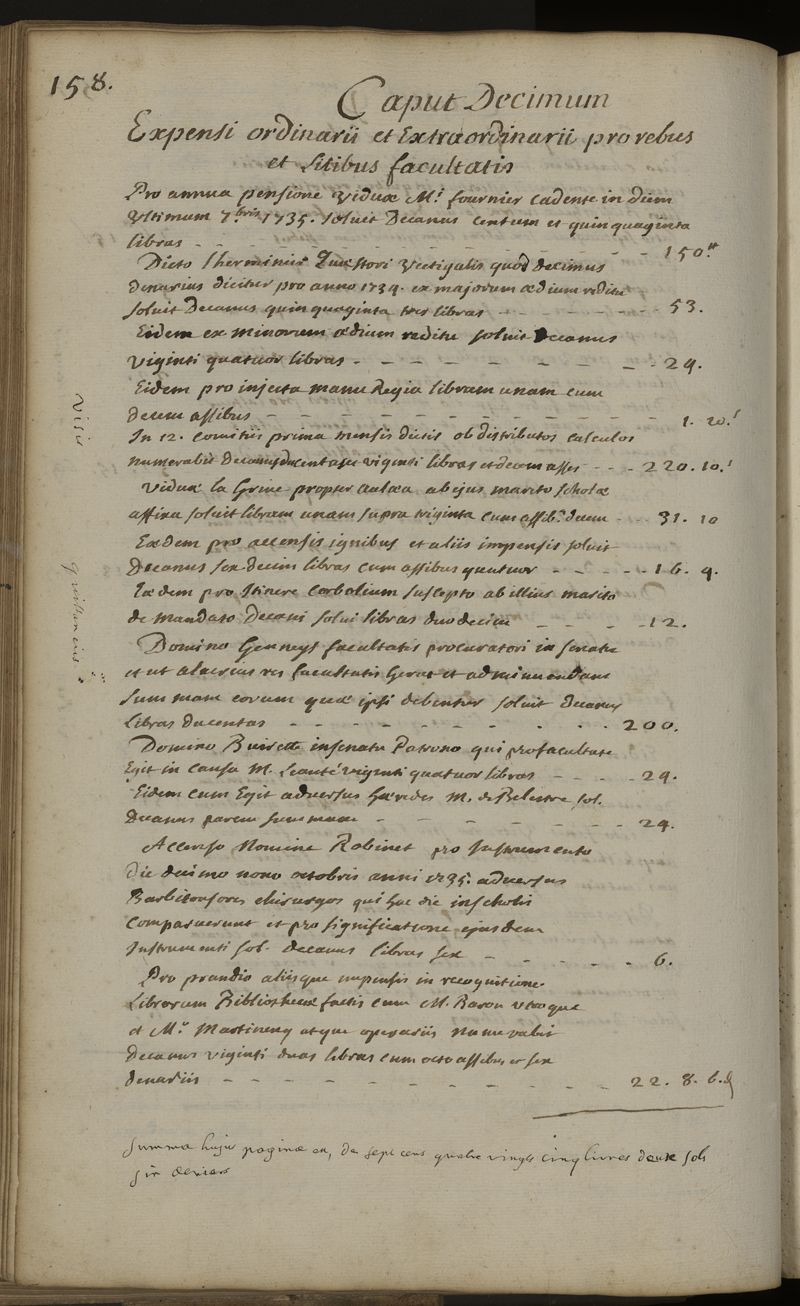 158.
Caput Decimum
Expensi ordinarii et Extraordinarii pro rebus
et Litibus facultatis
Pro annua pensione Viduæ M.i fournier cadente in diem
Ultimum 7.bris 1735. soluit Decanus Centum et quinquaginta
libras - - - - - - - - - 150.tt
Dicto Lherminier Quæstori Vectigalis quod decimus
denarius dicitur pro anno 1734. ex majorum ædium reditu
soluit Decanus quinquaginta tres libras - - - - - - 53.
Eidem ex minorum ædium reditu soluit Decanus
Viginti quatuor libras - - - - - - - - 24.
Eidem pro injecta manu Regia libram unam cum
decem assibus - - - - - - - - - 1. 10.s
In 12. comitiis prima mensis dictis ob distributos calculos
numerabit Decanus ducentas et viginti libras et decem asses - - - 220. 10.s
Viduæ la Grive propter aulæa ab ejus marito scholæ
affixa soluit libram unam supra triginta cum assib.s decem - - - 31. 10
Eædem pro accensis ignibus et aliis impensis soluit
Decanus sexdecim libras cum assibus quatuor - - - - - 16. 4.
Eædem pro Itinere Corbolium suscepto ab illius marito
de mandato Decani solui libras duodecim - - - - 12.
Domino Genneys facultatis procuratori in senatu
et ut alacrius res facultatis gerat et ad minuendam
summam eorum quæ ipsi debentur soluit Decanus
Libras ducentas - - - - - - - - 200.
Domino Buirette in senatu Patrono qui pro facultate
Egit in causa M. Leauté viginti quatuor libras - - - - 24.
Eidem cum Egit adversus hæredes M. de Belestre sol.
Decanus parem summam - - - - - - - 24.
Accenso Nomine Robinet pro Instrumento
die decimo nono octobris anni 1735. adversus
Barbitonsores chirurgos qui hac die in scholis
Comparuerunt et pro significatione ejusdem
Instrumenti sol. decanus libras sex - - - - - 6.
Pro prandio aliisque impensis in recognitione
Librorum Bibliothecæ factis cum M. Baron utroque
et M.o Martinenq atque operariis numerabit
Decanus viginti duas libras cum octo assibus et sex
denariis - - - - - - - - - 22. 8. 6.d
Summa hujus paginæ est, de sept cens quatre vingts cinq livres deux sols
six deniers
Visis
quittanciis